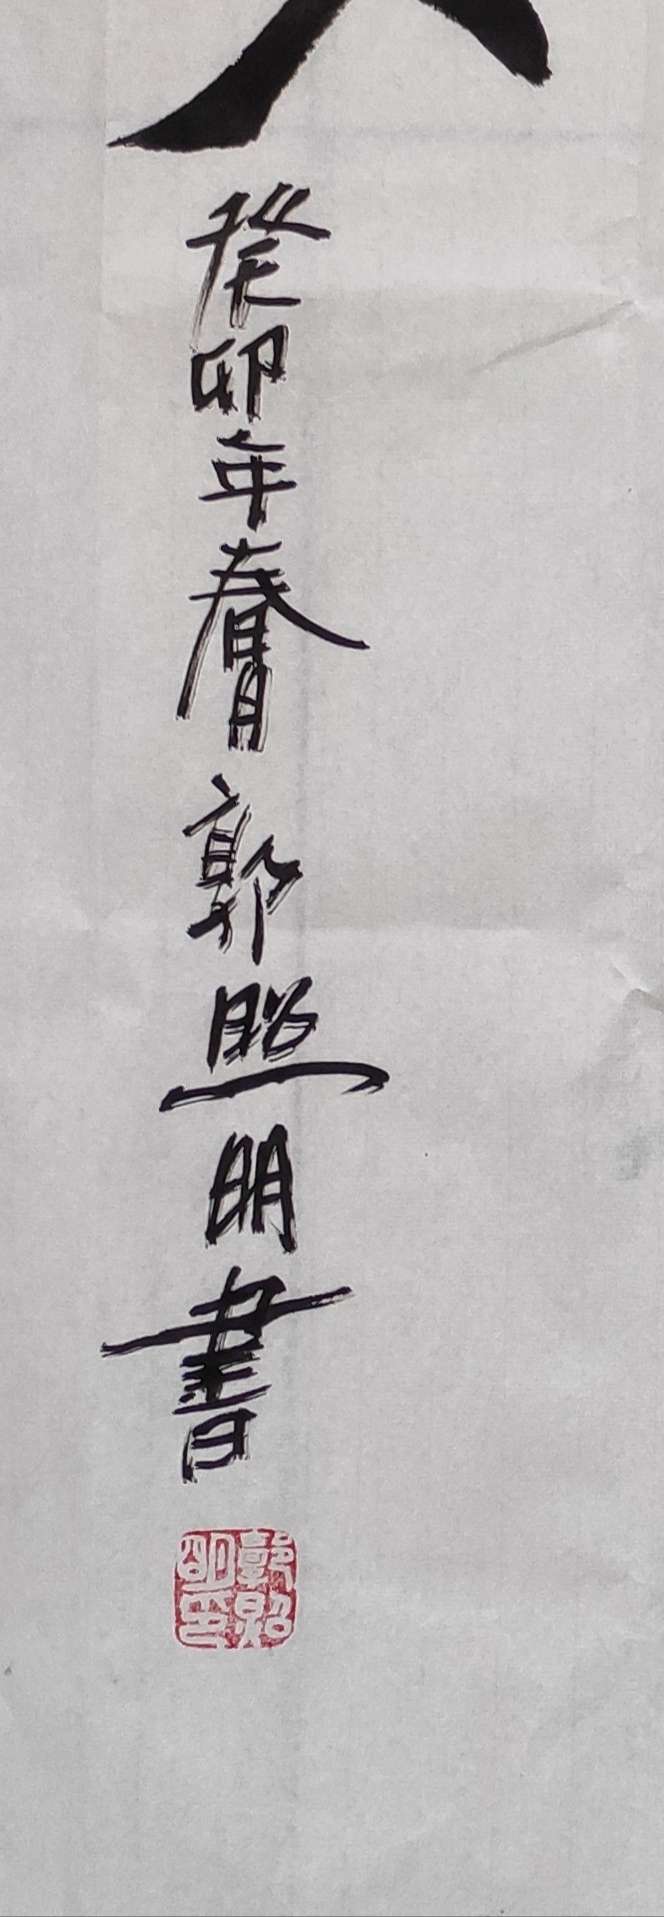 癸卯年春月郭照明書
郭照
明印